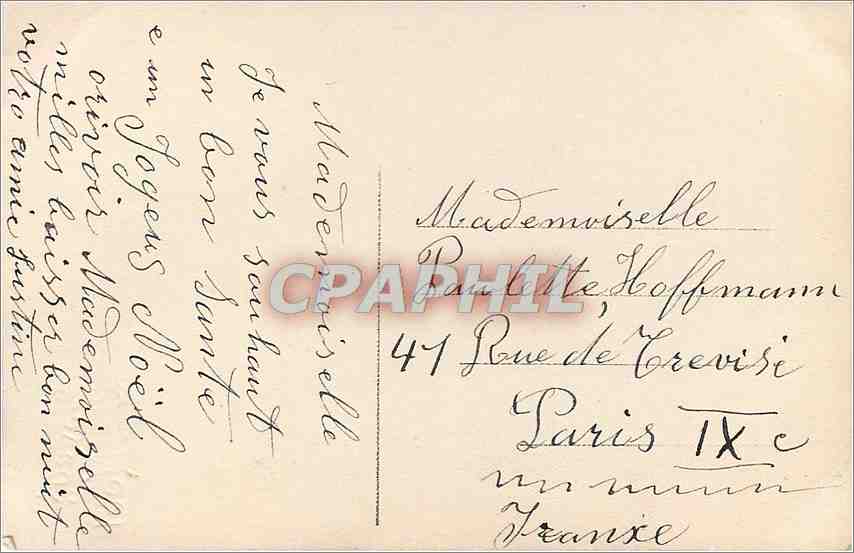 Mademoiselle
Je vous souhaut
un bon sante
e un Jogeus Noël
orivoir Mademoiselle
milles baisser bon nuit
votre amie Justine
Mademoiselle
Paulette, Hoffmann
41 Rue de Trevise
Paris IX e
Franxe
CPAPHIL